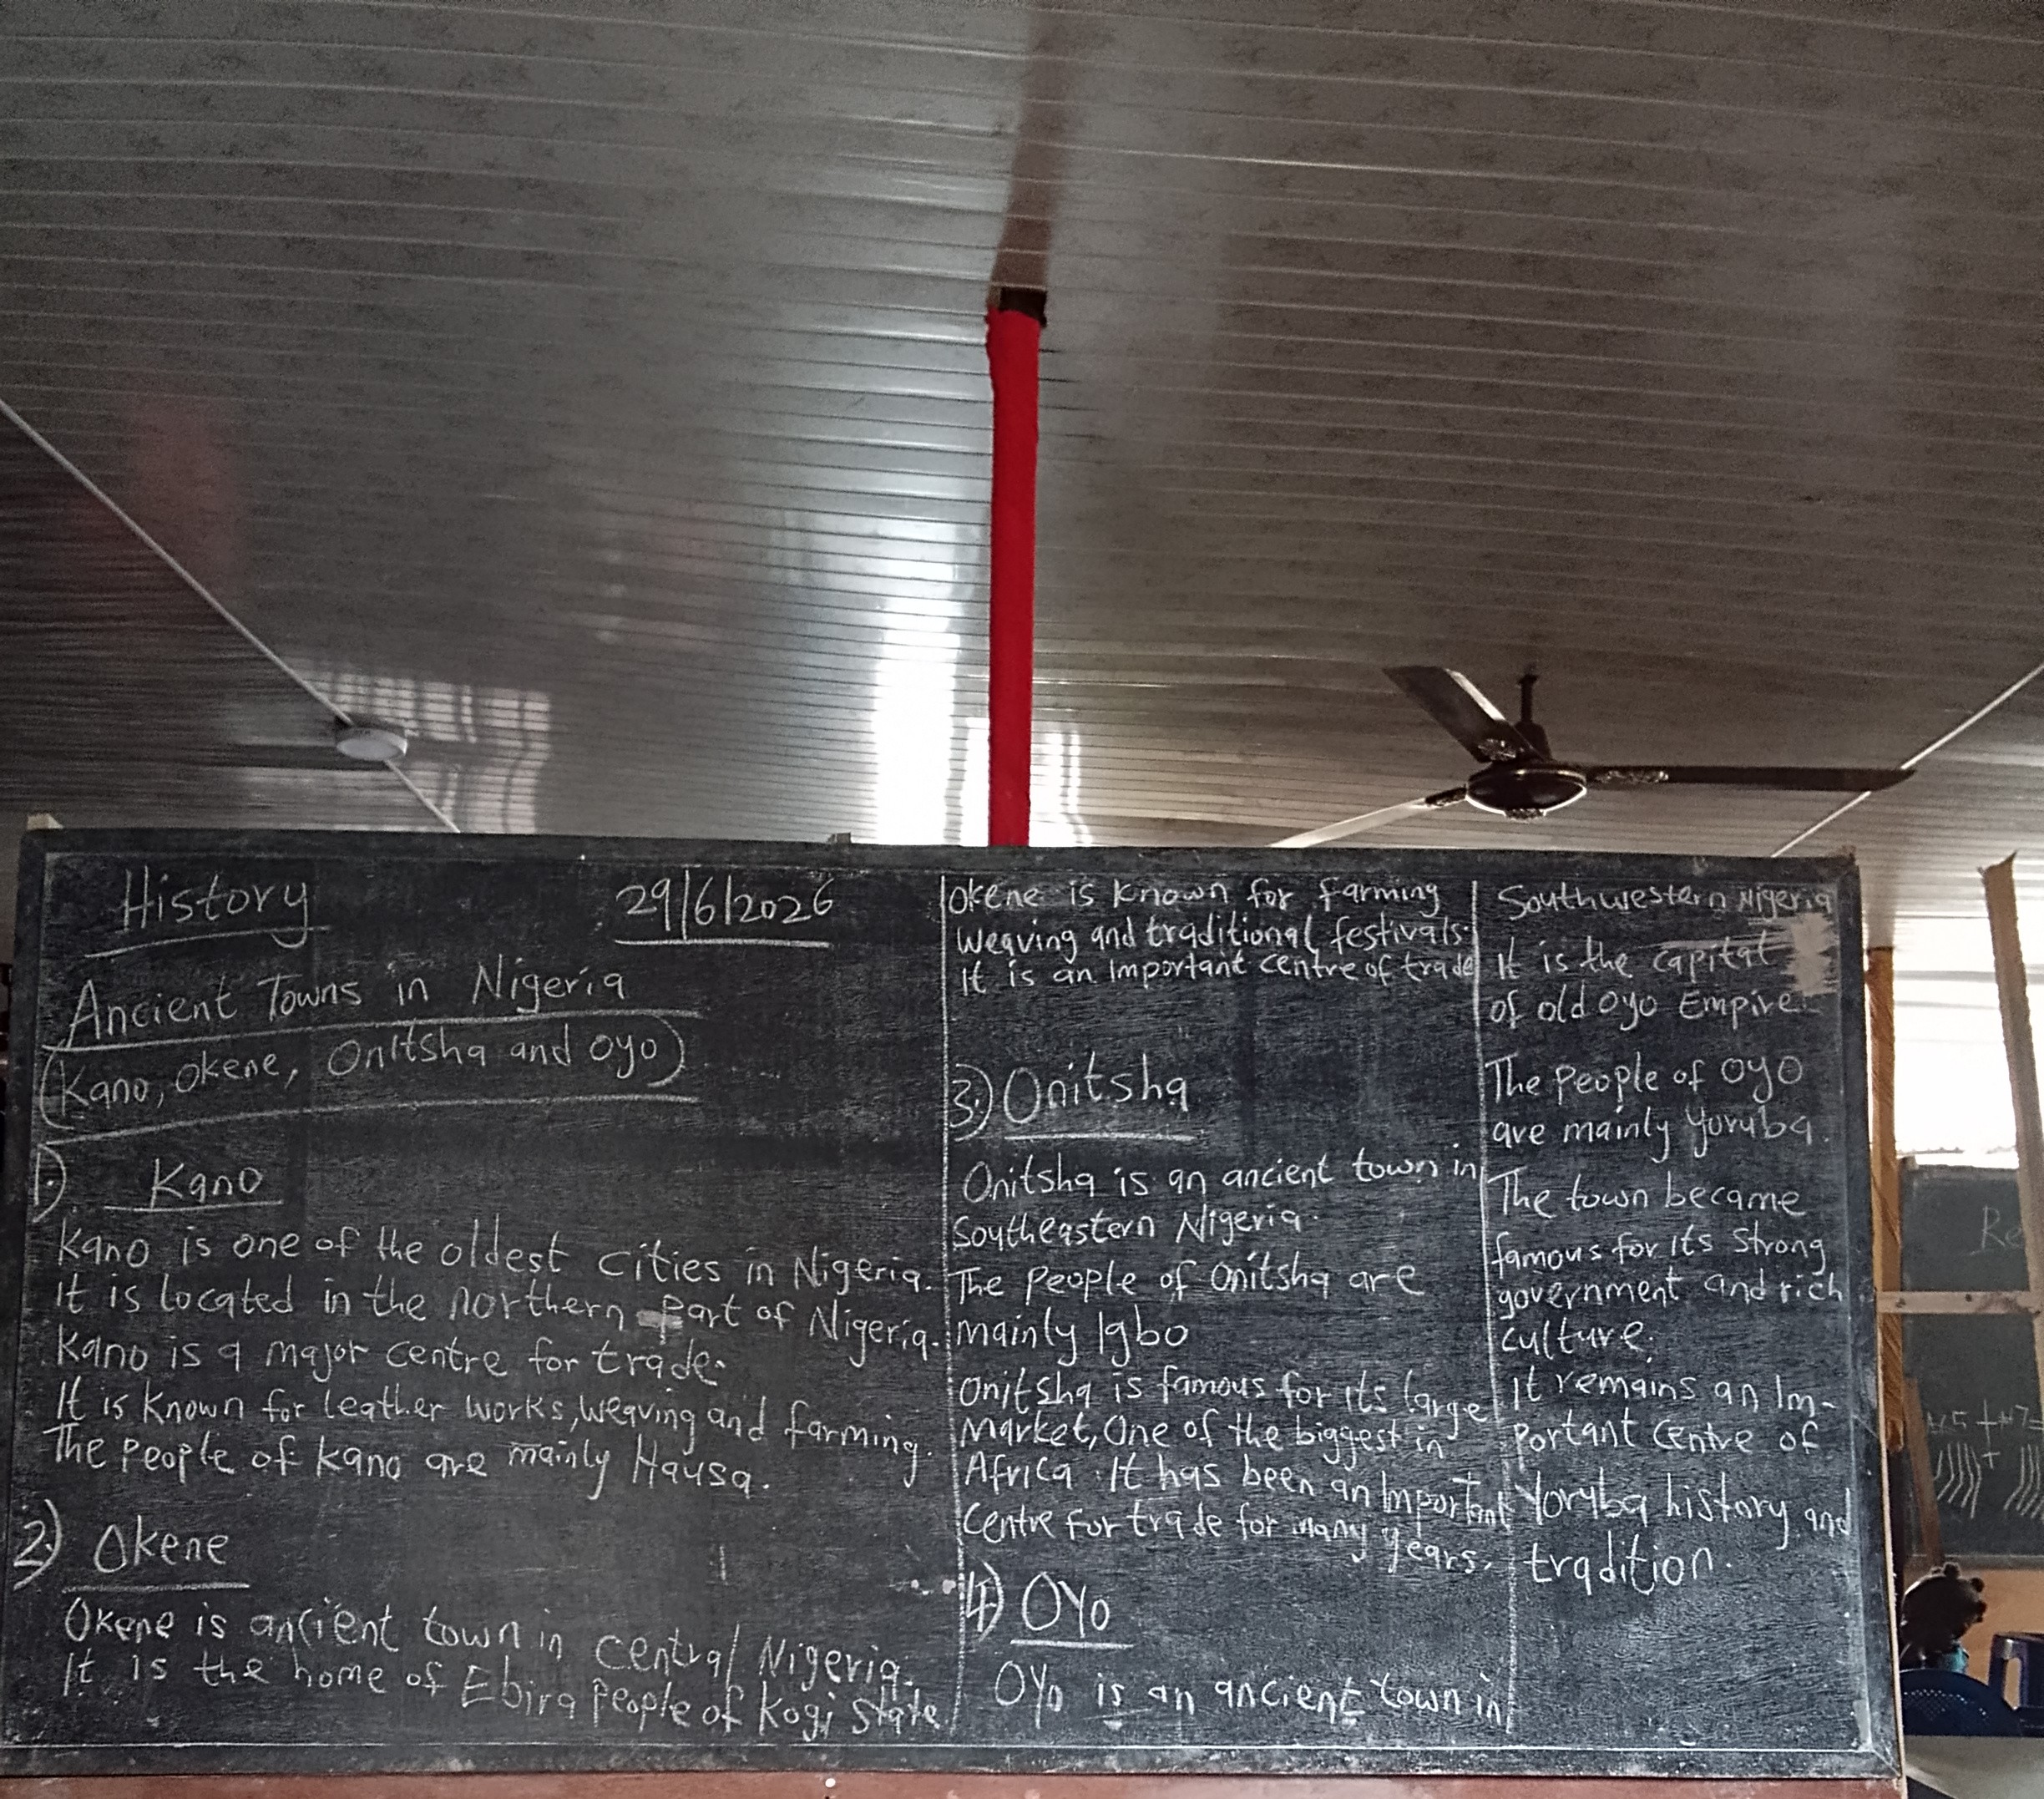 History 29/6/2026
Ancient Towns in Nigeria
(Kano, Okene, Onitsha and Oyo)
1) Kano
Kano is one of the oldest cities in Nigeria.
It is located in the northern part of Nigeria.
Kano is a major centre for trade.
It is known for leather works, weaving and farming.
The people of Kano are mainly Hausa.
2) Okene
Okene is ancient town in central Nigeria.
It is the home of Ebira people of Kogi State
Okene is known for farming
weaving and traditional festivals.
It is an important centre of trade
3) Onitsha
Onitsha is an ancient town in
Southeastern Nigeria.
The people of Onitsha are
mainly Igbo
Onitsha is famous for its large
Market, One of the biggest in
Africa. It has been an important
Centre for trade for many years.
4) Oyo
Oyo is an ancient town in
Southwestern Nigeria
It is the capital
of old Oyo Empire.
The people of Oyo
are mainly Yoruba.
The town became
famous for its strong
government and rich
culture.
It remains an Im-
portant centre of
Yoruba history and
tradition.
Re